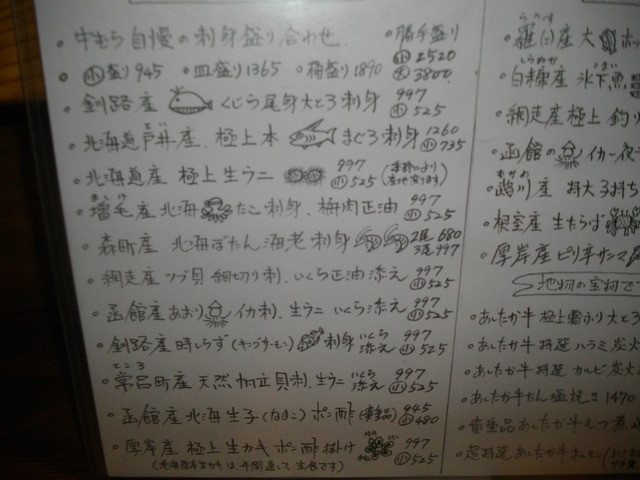 ・牛むら自慢の刺身盛り合わせ
・勝手盛り
小 2520
大 3800
・小盛り945 ・皿盛り1365 ・桶盛り1890
・釧路産 くじら尾身大とろ刺身 997 小525
・北海道戸井産、極上本まぐろ刺身 1260 小735
・北海道産 極上生ウニ 997 小525 (季節により産地変ります)
・増毛産 北海たこ刺身、梅肉正油 997 小525
・森町産 北海ぼたん海老刺身 2尾680 3尾997
・網走産 ツブ貝 細切り刺、いくら正油添え 997 小525
・函館産 あおりイカ刺、生ウニ いくら添え 997 小525
・釧路産 時しらず(キングサーモン)刺身 いくら添え 997 小525
・常呂町産 天然 帆立貝刺、生ウニ いくら添え 997 小525
ところ
・函館産 北海生子(なまこ)ポン酢(貴重品) 945 小480
・厚岸産 極上生カキ ポン酢掛け 997 小525
(北海道厚岸産生カキは年間通して生食です)
・羅臼産 大
らうす
・白糠産 氷下魚
しらぬか こまい
・網走産 極上 釣り
・函館の イカ一夜
・鵡川産 特大 子持ち
むかわ
・根室産 生たらば
・厚岸産 ピリ辛サンマ
地物の宝物で
・あしたか牛 極上霜ふり 大とろ
・あしたか牛 特選 ハラミ 炭火
・あしたか牛 特選 カルビ 炭火
・あしたか牛たん 塩焼 1470
・貴重品あしたか牛もつ煮
・超特選 あしたか牛ホルモン